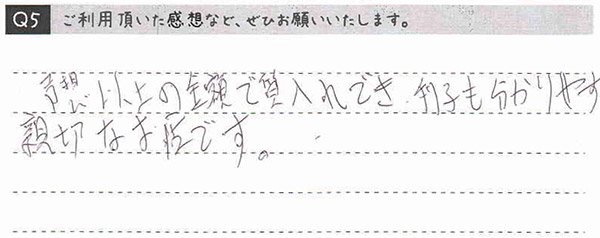 Q5 ご利用頂いた感想など、ぜひお願いいたします。
予想以上の金額で質入れでき、利子も分かりやす
親切なお店です。